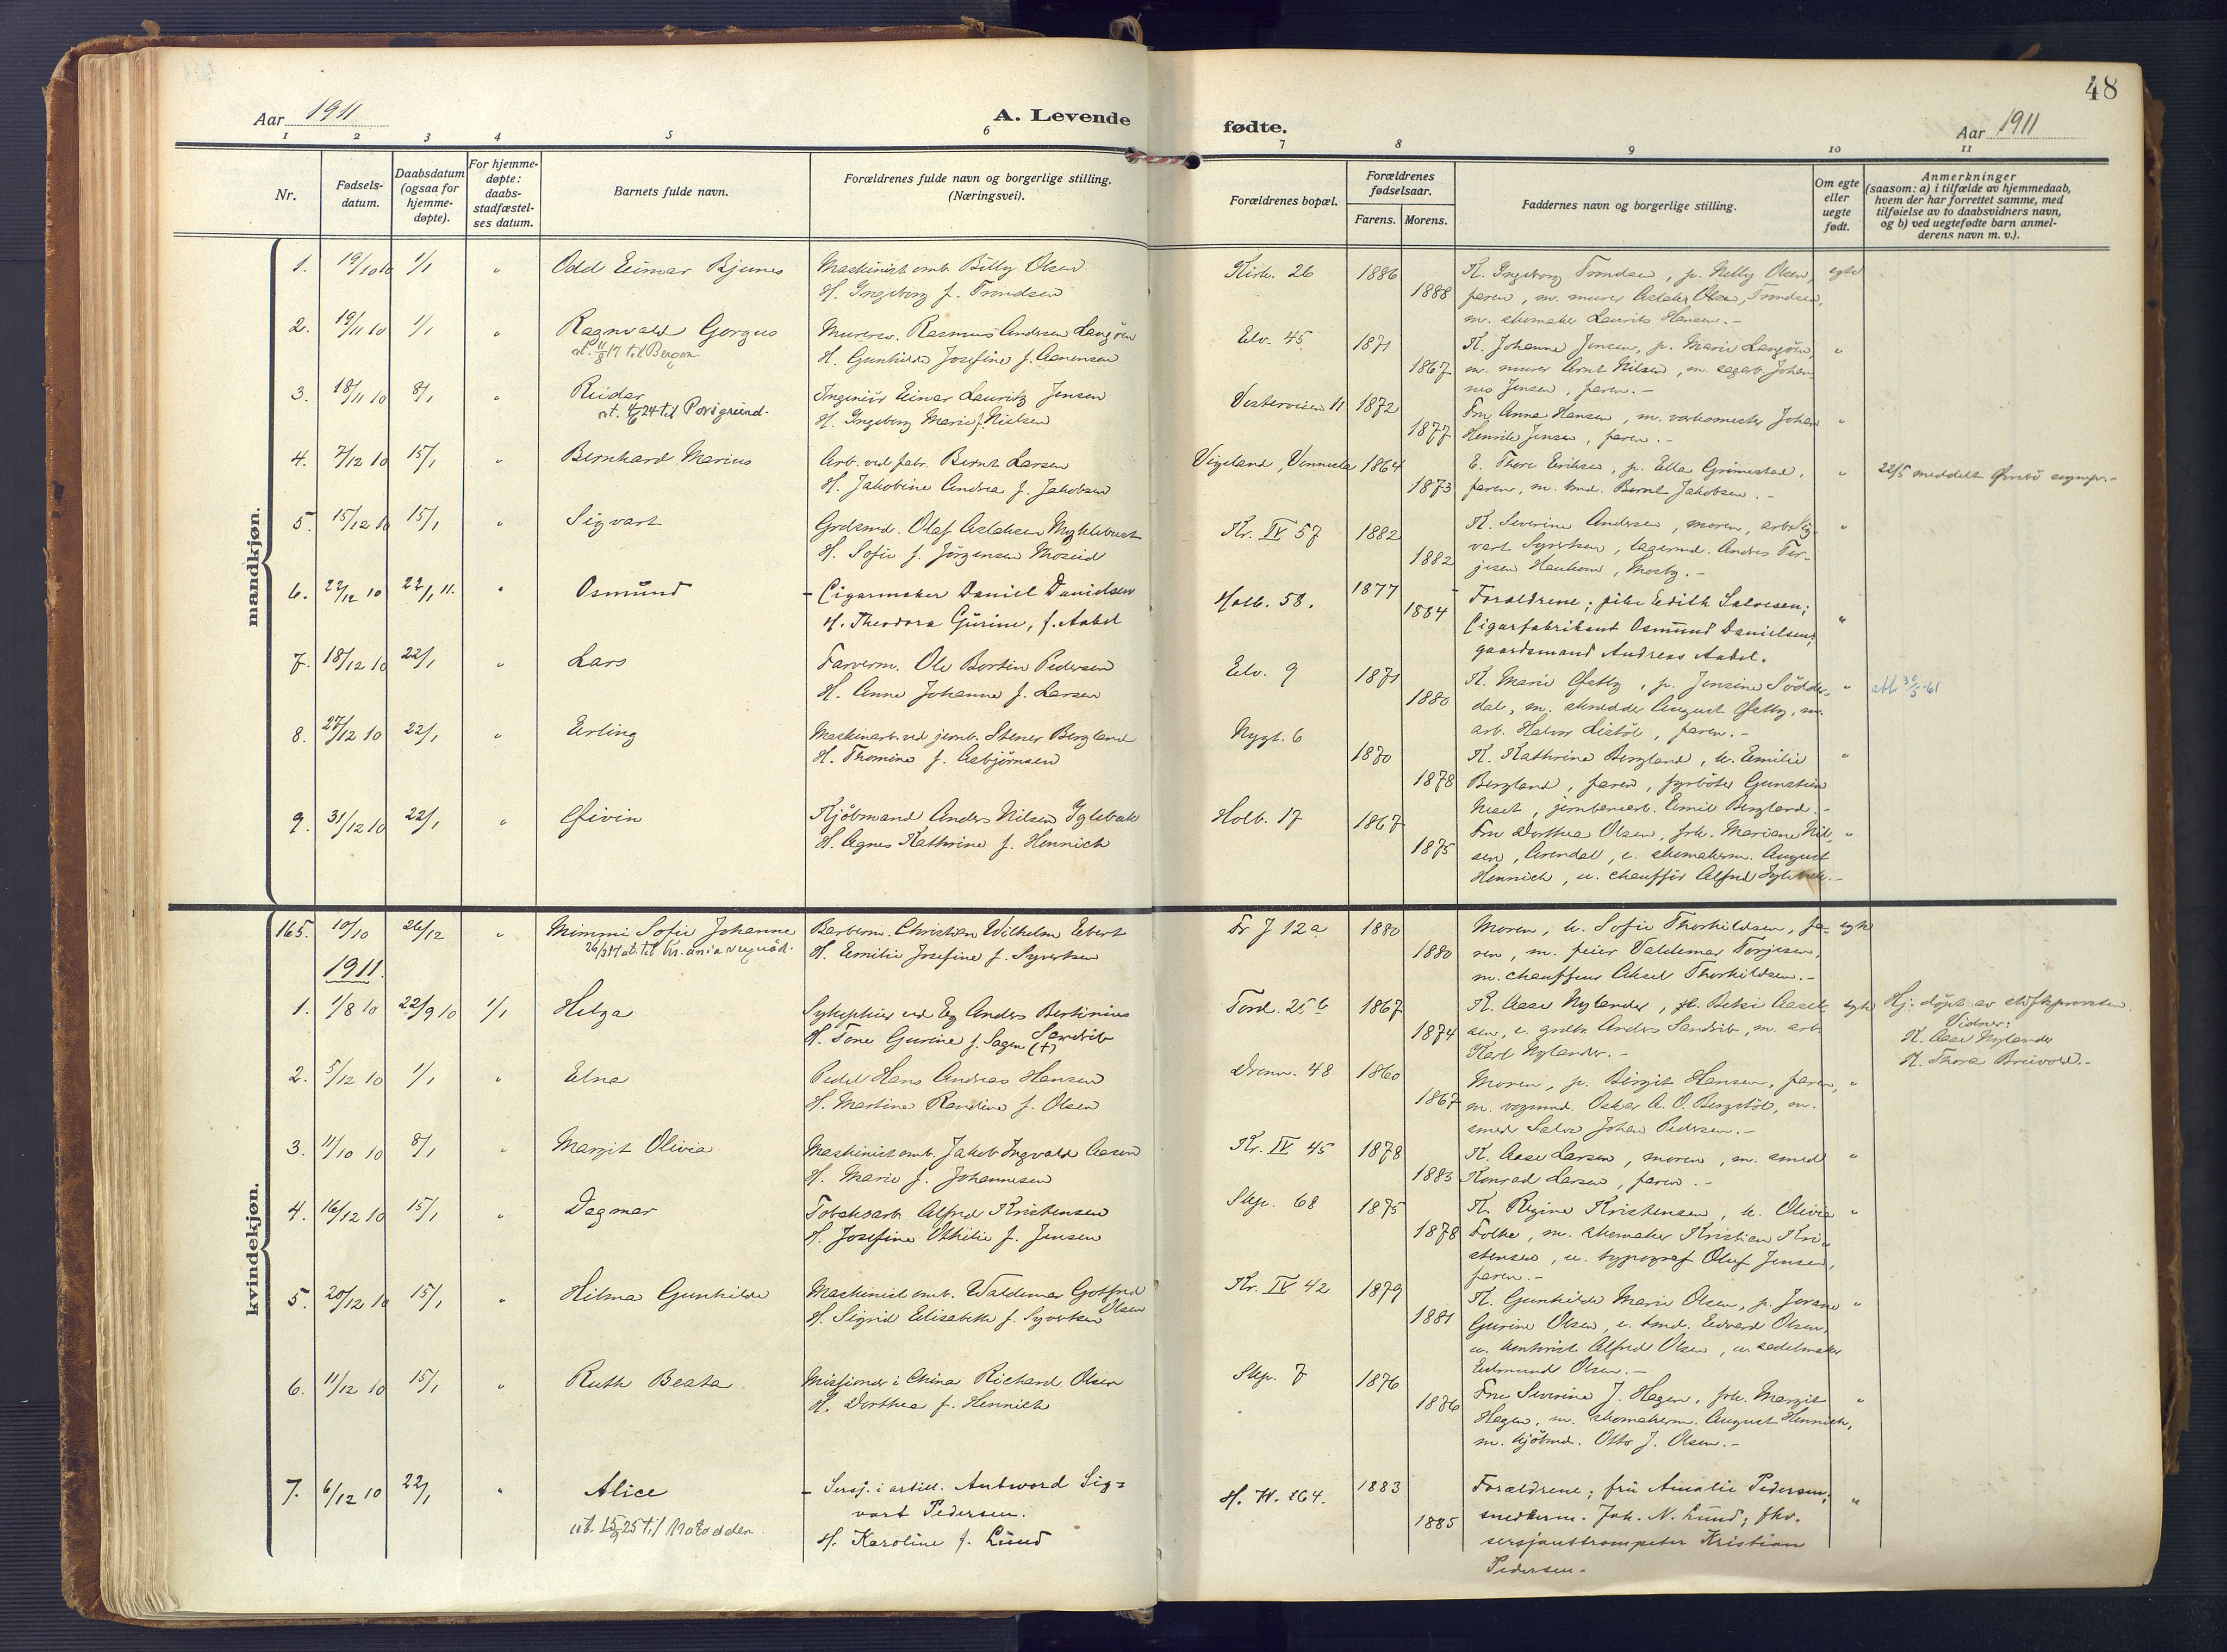 48
Aar 1911
A. Levende
fødte.
Aar 1911
1 2 3 4 5 6 7 8 9 10 11
Nr.
Fødsels-
datum.
Daabsdatum
(ogsaa for
hjemme-
døpte).
For hjemme-
døpte:
daabs-
stadfæstel-
ses datum.
Barnets fulde navn.
Forældrenes fulde navn og borgerlige stilling.
(Næringsvei).
Forældrenes bopæl.
Forældrenes
fødselsaar.
Farens. Morens.
Faddernes navn og borgerlige stilling.
Om egte
eller
uegte
født.
Anmerkninger
(saasom: a) i tilfælde av hjemmedaab,
hvem der har forrettet samme, med
tilføielse av to daabsvidners navn,
og b) ved uegtefødte barn anmel-
derens navn m. v.).
mandkjøn.
1. 19/10 10 1/1 " Odd Eimar Bjunes
Maskinist omb. Billy Olsen
H. Ingeborg f. Trondsen
Kirk. 26 1886 1888
K. Ingeborg Trondsen, p. Nelly Olsen, egte
faren, m. murer Aslak Olsen Trondsen,
m. skomaker Laurits Hansen.-
2. 19/11 10 1/1 " Ragnvald Gorgus
at. 11/8 17 til Bergen
Murersv. Rasmus Andersen Langøen
H. Gunhilde Josefine f. Aanensen
Elv. 45 1871 1867
K. Johanne Jensen, p. Marie Langøen, "
m. murer Arnt Nilsen, m. sagarb. Johan-
nes Jensen, faren.-
3. 18/11 10 8/1 " Reidar
at. 4/6 24 til Porsgrund.
Ingeniør Einar Lauritz Jensen
H. Ingeborg Marie f. Nielsen
Vesterveien 11 1872 1877
Fru Anna Hansen, m. verksmester Johan "
Henrik Jensen, faren.-
4. 7/12 10 15/1 " Bernhard Marius
Arb. ved fabr. Bernt Larsen
H. Jakobine Andrea f. Jakobsen
Vigeland, Vennesla 1864 1873
E. Thore Eriksen, p. Ella Grimestad, "
faren, m. tmd. Bernt Jakobsen.-
22/5 meddelt Øvrebø sognepr.-
5. 15/12 10 15/1 " Sigvart
Grdsmd. Olaf Aslaksen Myklebust
H. Sofie f. Jørgensen Moseid
Kr. IV 57 1882 1882
K. Severine Andersen, moren, arb. Sig- "
vart Syvertsen, lagermd. Andres Ter-
jesen Haukom, Mosby.-
6. 22/12 10 22/1 11. " Osmund
- Cigarmaker Daniel Danielsen
H. Theodora Gurine, f. Aabel
Holb. 58. 1877 1884
Forældrene; pike Edith Salvesen;
Cigarfabrikant Osmund Danielsen; "
gaardsmand Andreas Aabel.
7. 18/12 10 22/1 " Lars
Farverm. Ole Bertin Pedersen
H. Anne Johanne f. Larsen
Elv. 9 1871 1880
K. Marie Østby, p. Jensine Södder- "
dal, m. skrædder August Østby, m.
arb. Halvor Listöl, faren.-
att. 30/5-61
8. 27/12 10 22/1 " Erling
Maskinarb. ved jernb. Stener Bergland
H. Thomine f. Asbjørnsen
Nygt. 6 1870 1878
K. Kathrine Bergland, u. Emilie "
Bergland, faren, fyrböter Gunstein
Neset, jernbanearb. Emil Bergland.-
9. 31/12 10 22/1 " Øivin
Kjöbmand Anders Nilsen Iglebæk
H. Agnes Kathrine f. Hennich
Holb. 17 1867 1875
Fru Dorthea Olsen, frk. Mariane Nil- "
sen, Arendal, e. skomakerm. August
Hennich, u. chauffør Alfred Iglebæk.-
kvindekjøn.
165. 10/10 26/12 " Mimmi Sofie Johanne
26/3 17 at. til Kr.ania
Barberm. Christian Wilhelm Ebert
H. Emilie Josefine f. Syvertsen
Fr J 12a 1880 1880
Moren, u. Sofie Thorkildsen, fa- egte
ren, m. feier Valdemar Torjesen,
m. chauffeur Aksel Thorkildsen.-
1911.
1. 1/8 10 22/9 10 1/1 Helga
Sykepleier ved Eg Anders Bertinius
Sandsib
H. Tone Gurine f. Sagen (†)
Tord. 25 b 1867 1874
K. Aase Nylander, p. Betsi Aasel- egte
sen, e. grdbr. Anders Sandsib, m. arb.
Karl Nylander.-
Hj: döpt av stiftsprosten.
Vidner:
K. Aase Nylander
K. Thora Breivold.-
2. 5/12 10 1/1 " Elna
Pedel Hans Andreas Hansen
H. Martine Randine f. Olsen
Dronn. 48 1860 1867
Moren, p. Birgit Hansen, faren, "
m. vognmd. Oskar A. O. Bergstöl, m.
smed Salve Johan Pedersen.-
3. 11/10 10 8/1 " Margit Olivia
Maskinist omb. Jakob Ingvald Aasen
H. Marie f. Johannesen
Kr. IV 45 1878 1883
K. Aase Larsen, moren, m. smed "
Konrad Larsen, faren.-
4. 16/12 10 15/1 " Dagmar
Tobaksarb. Alfred Kristensen
H. Josefine Othilie f. Jensen
Skp. 68 1875 1878
K. Regine Kristensen, u. Olivia "
Folke, m. skomaker Kristian Kri-
stensen, u. typograf Oluf Jensen,
faren.-
5. 20/12 10 15/1 " Hilma Gunhilde
Maskinist omb. Waldemar Gotfred
Olsen
H. Sigrid Elisabeth f. Syvertsen
Kr. IV 42 1879 1881
K. Gunhilde Marie Olsen, p. Jorane "
Gurine Olsen, e. tmd. Edvard Olsen,
u. kontorist Alfred Olsen, u. sadelmaker
Edmund Olsen.-
6. 11/12 10 15/1 " Ruth Beata
Missionær i China Richard Olsen
H. Dorthea f. Hennich
Skp. 7 1876 1876
Fru Severine J. Hagen, frk. Margit "
Hagen, m. skomakerm. August Hennich,
m. kjöbmd. Otto J. Olsen.-
7. 6/12 10 22/1 " Alice
ut. 15/9 25 til Notodden
- Sersj. i artill. Antword Sig-
vart Pedersen.
H. Karoline f. Lund
H. W. 164. 1883 1885
Forældrene; fru Amalie Pedersen; "
snedkerm. Joh. N. Lund; fhv.
sersjanttrompeter Kristian
Pedersen.